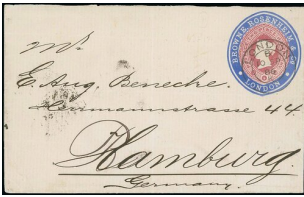 BROWNE, ROSENHEIM & Co
LONDON
LONDON
Mr.
E. Aug. Benecke.
Hermannstrasse 44.
Hamburg
Germany.